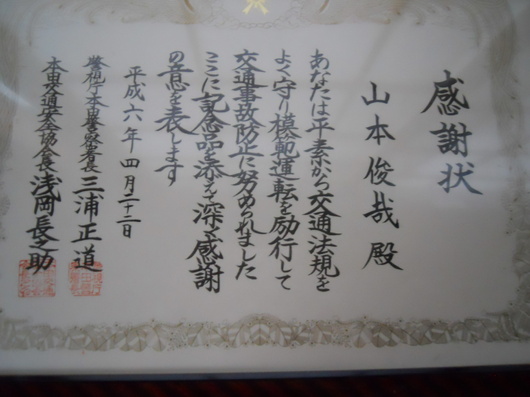 感謝状
山本俊哉殿
あなたは平素から交通法規を
よく守り模範運転を励行して
交通事故防止に努められました
ここに記念品を添えて深く感謝
の意を表します
平成六年四月二十二日
警視庁本田警察署長 三浦正道
本田交通安全協会長 浅岡長之助